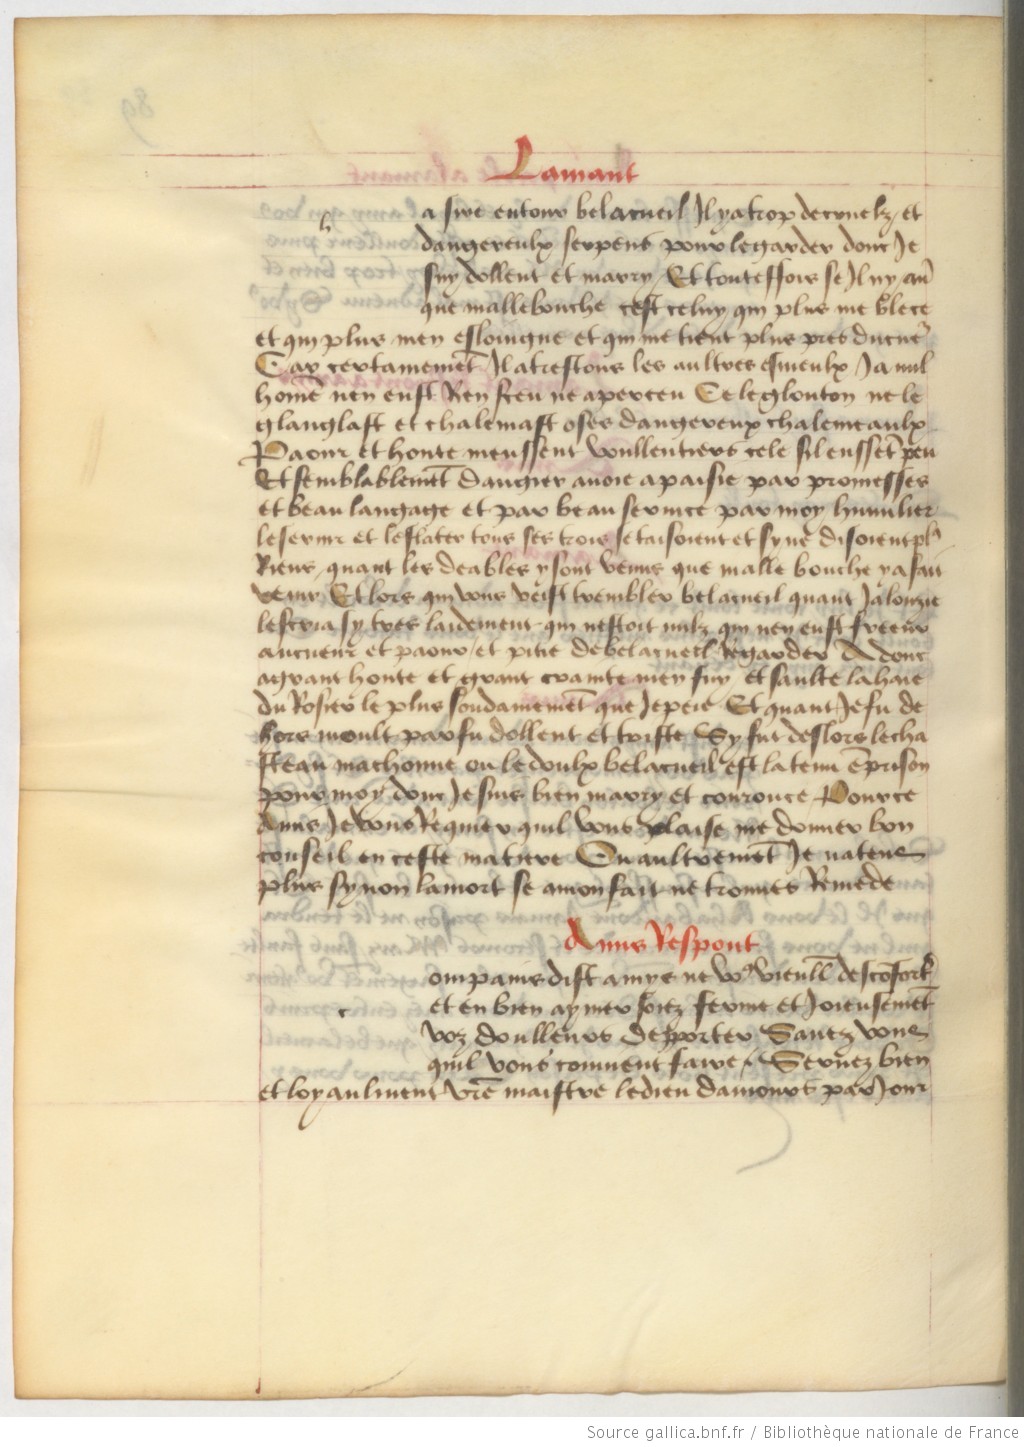 Lamant
h
a sire entour belacueil Il ya trop de cruelz et
dangereulx serpens pour le garder donc Je
suy dollent et marry Et touteffois se Il ny au
que mallebouche cest celuy qui plus me blece
et qui plus men esloingne et qui me tient plus pres du cuer
Car certainement Il a trestous les aultres esmeulx Ja nul
home nen eust Rien sceu ne aperceu Ce le glouton ne le
glanglast et chalemast o ses dangereux chalemeaulx
Paour et honte meussent voullentiers cele sil eussent peu
Et semblablement Dangier avoie apaisie par promesses
et beau langage et par beau service par moy humilier
le servir et le flater tous ses trois se taisoient et sy ne disoient pl9
Riens quant les deables y sont venus que malle bouche y a fait
venir Et lors qui vous veist trembler belacueil quant Jalouzie
lescria sy tres laidement qui nestoit nulz qui nen eust freeur
au cueur et paour et pitie de belacueil Regarder Adonc
a grant honte et grant crainte men fuy et saulte la haie
du Rosier le plus soudainement que Je peie Et quant Je fu de
hors moult par fu dollent et triste Sy fut des lors le cha
steau machonne ou le doulx belacueil est la tenu en prison
pour moy donc Je suis bien marry et courouce Pource
Amis Je vous Requier quil vous plaise me donner bon
conseil en ceste matiere Ou aultrement Je natens
plus synon la mort se a mon fait ne trouves Remede
Amis Respont
c
ompains dist amys ne vo9 vieull descofort
et en bien aymer soiez ferme et Joieusement
voz doulleurs deporter Savez vous
quil vous convient faire / Servez bien
et loyaulment vre maistre le dieu damours par Jour
Source gallica.bnf.fr / Bibliothèque nationale de France